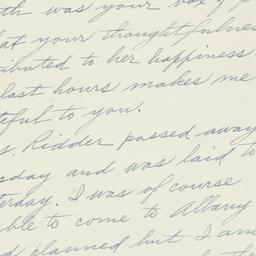 th was your box of
at your thoughtfulness
ributed to her happiness
last hours makes me
teful to you.
s. Ridder passed away
sday and was laid to
terday. I was of course
ble to come to Albany
d planned but I am